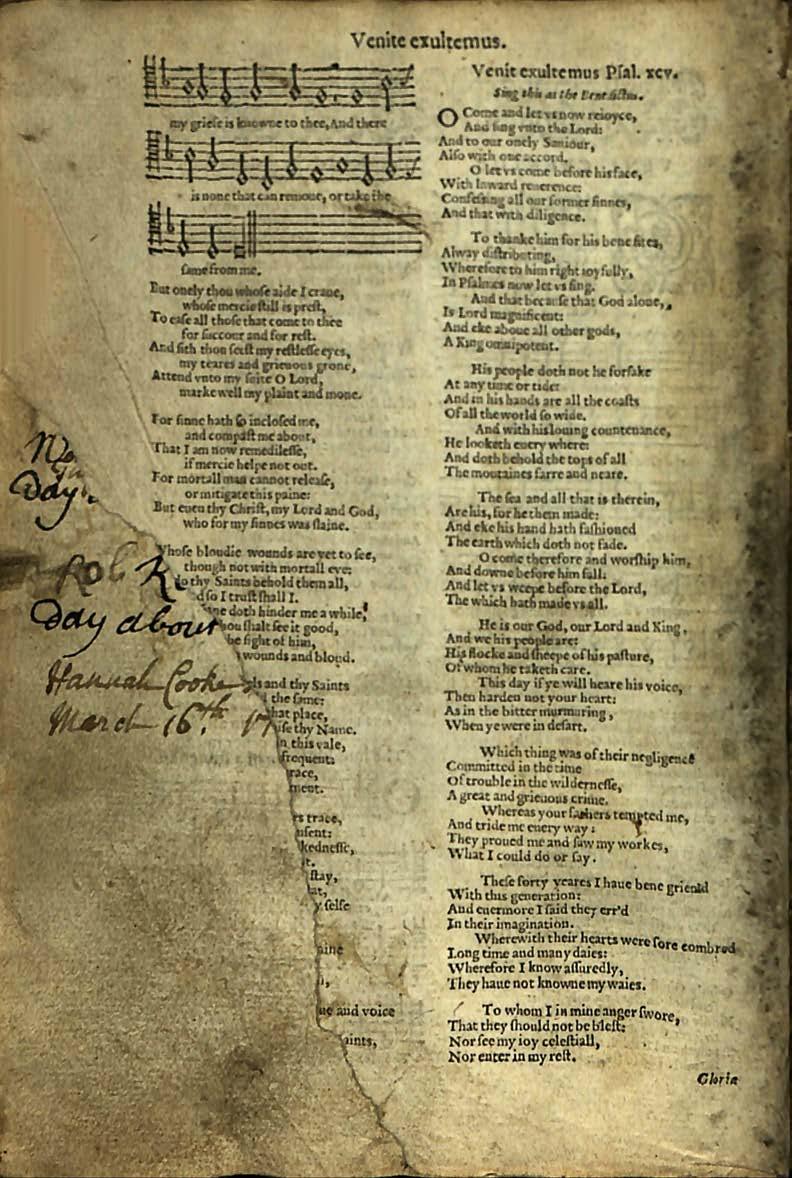 Venite exultemus.
my griefe is knowne to thee, And there
is none that can remoue, or take the
same from me.
But onely thou whose aide I craue,
whose mercie still is prest,
To ease all those that come to thee
for succour and for rest.
And sith thou seest my restlesse eyes,
my teares and grieuous grone,
Attend vnto my suite O Lord,
marke well my plaint and mone.
For sinne hath so inclosed me,
and compast me about,
That I am now remedilesse,
if mercie helpe not out.
For mortall man cannot release,
or mitigate this paine:
But euen thy Christ, my Lord and God,
who for my sinnes was slaine.
Whose bloudie wounds are yet to see,
though not with mortall eye:
to thy Saints behold them all,
d so I trust shall I.
ne doth hinder me a while,
hou shalt see it good,
he sight of him,
wounds and bloud.
ls and thy Saints
the same:
hat place,
ise thy Name.
n this vale,
frequent:
race,
ment.
rs trace,
nsent:
kednesse,
it.
stay,
at,
y selfe
aine
,
ue and voice
aints,
Day
Rob R
Day about
Hannah Cooke
March 16th. 17
Venit exultemus Psal. xcv.
Sing this as the Benedictus.
O Come and let vs now reioyce,
And sing vnto the Lord:
And to our onely Sauiour,
Also with one accord.
O let vs come before his face,
With inward reuerence:
Confessing all our former sinnes,
And that with diligence.
To thanke him for his benefites,
Alway distributing,
Wherefore to him right ioyfully,
In Psalmes now let vs sing.
And that because that God alone,
Is Lord magnificent:
And eke aboue all other gods,
A King omnipotent.
His people doth not he forsake
At any time or tide:
And in his hands are all the coasts
Of all the world so wide.
And with his louing countenance,
He looketh euery where:
And doth behold the tops of all
The mountaines farre and neare.
The sea and all that is therein,
Are his, for he them made:
And eke his hand hath fashioned
The earth which doth not fade.
O come therefore and worship him,
And downe before him fall:
And let vs weepe before the Lord,
The which hath made vs all.
He is our God, our Lord and King,
And we his people are:
His flocke and sheepe of his pasture,
Of whom he taketh care.
This day if ye will heare his voice,
Then harden not your heart:
As in the bitter murmuring,
When ye were in desart.
Which thing was of their negligence
Committed in the time
Of trouble in the wildernesse,
A great and grieuous crime.
Whereas your fathers tempted me,
And tride me euery way:
They proued me and saw my workes,
What I could do or say.
These forty yeares I haue bene grieuid
With this generation:
And euermore I said they err'd
In their imagination.
Wherewith their hearts were sore combred
Long time and many daies:
Wherefore I know assuredly,
They haue not knowne my waies.
To whom I in mine anger swore,
That they should not be blest:
Nor see my ioy celestiall,
Nor enter in my rest.
Gloria